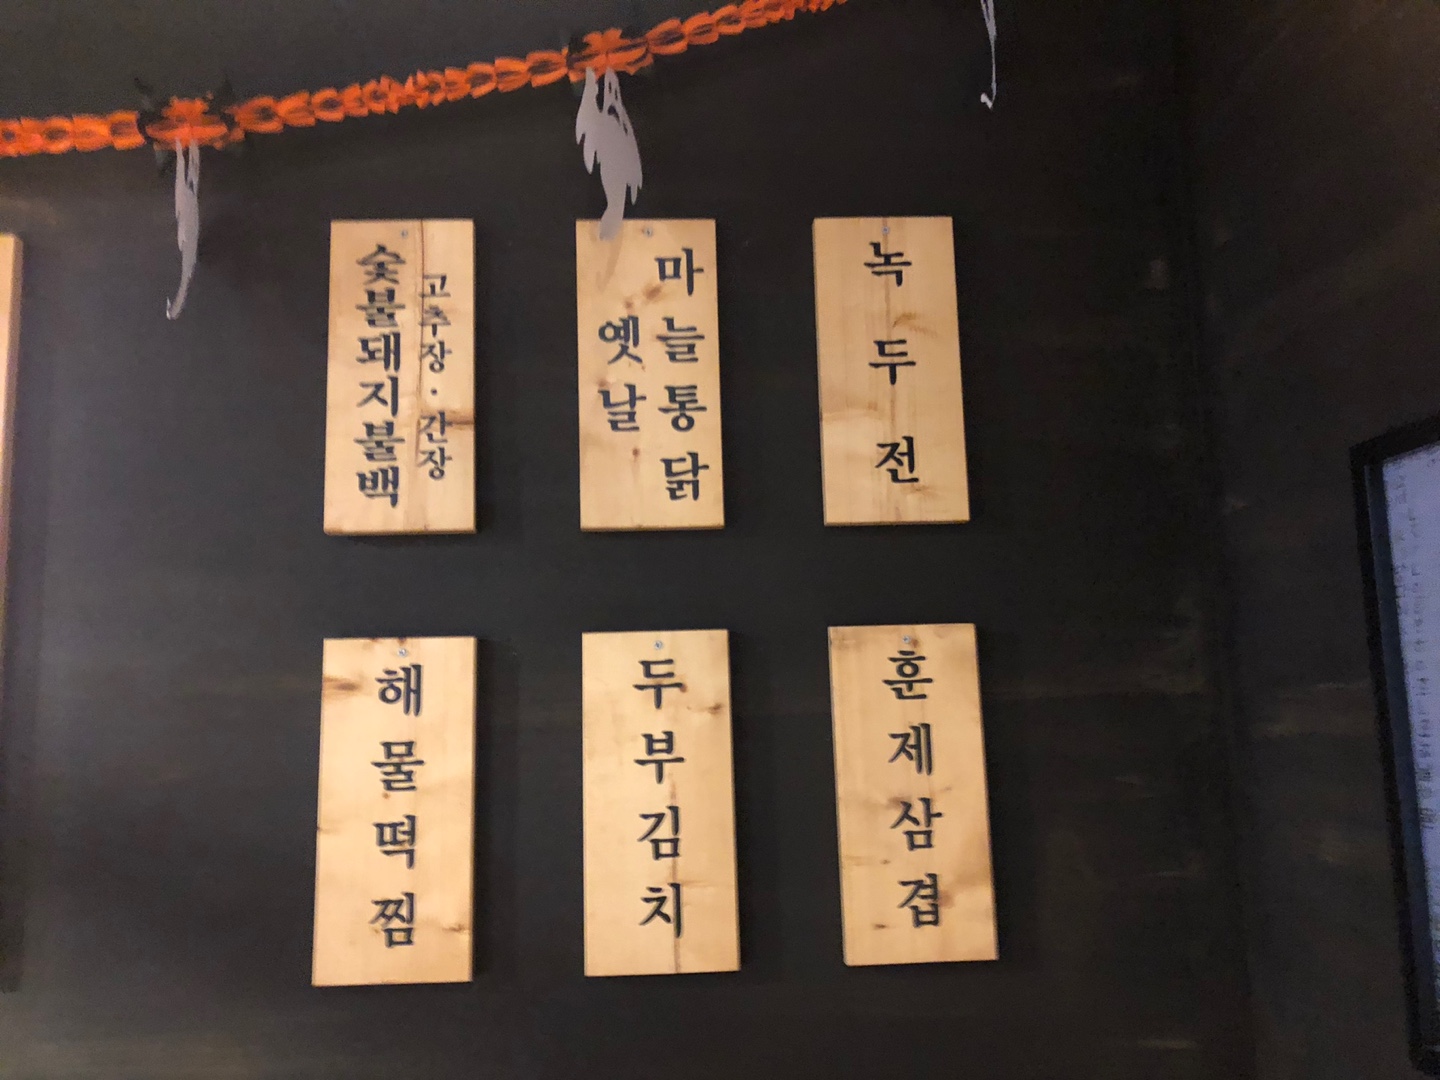 고추장·간장
숯불돼지불백
마늘통닭
옛날
녹두전
해물떡찜
두부김치
훈제삼겹